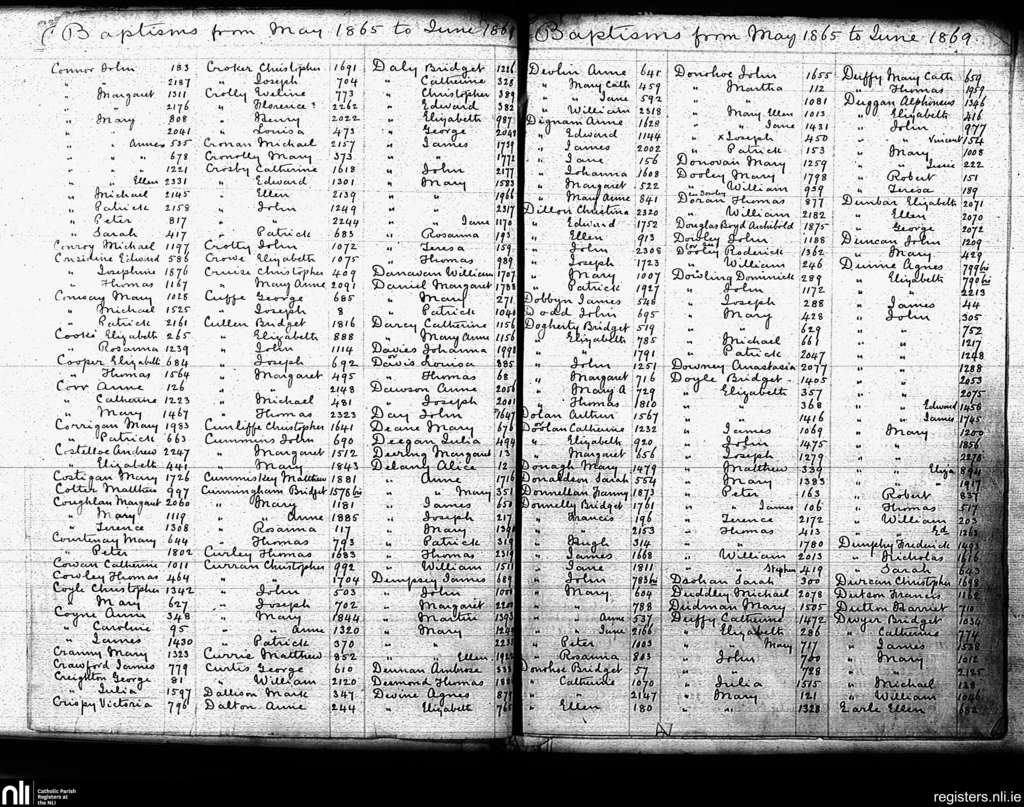 Baptisms from May 1865 to June 1869
Connor John 183
" " 2187
" Margaret 1311
" " 2176
" Mary 808
" " 2041
" " Annes 535
" " " 678
" " " 1221
" " Ellen 2331
" Michael 2145
" Patrick 2158
" Peter 817
" Sarah 417
Conroy Michael 1197
Considine Edward 586
" Josephine 1876
" Thomas 1167
Conway Mary 1028
" Michael 1525
" Patrick 2161
Cooke Elizabeth 265
" Rosanna 1239
Cooper Elizabeth 684
" Thomas 1564
Corr Anne 126
" Catherine 1223
" Mary 1467
Corrigan Mary 1983
" Patrick 663
Costelloe Andrew 2247
" Elizabeth 441
Costigan Mary 1726
Cotter Matthew 997
Coughlan Margaret 2060
" Mary 1119
" Terence 1308
Courtenay Mary 644
" Peter 1802
Cowan Catherine 1011
Cowley Thomas 464
Coyle Christopher 1342
" Mary 627
Coyne Anne 348
" Caroline 95
" James 1430
Cranny Mary 1323
Crawford James 779
Creighton George 81
" Julia 1597
Crispy Victoria 796
Croker Christopher 1691
" Joseph 704
Crolly Eveline 773
" Florence 2262
" Henry 2022
" Louisa 473
Cronan Michael 2157
Cronolly Mary 373
Crosby Catherine 1618
" Edward 1301
" Ellen 2139
" John 1249
" " 2244
" Patrick 683
Crotty John 1072
Crowe Elizabeth 1075
Cruise Christopher 409
" Mary Anne 2091
Cuffe George 685
" Joseph 8
Cullen Bridget 1816
" Elizabeth 888
" John 1114
" Joseph 692
" Margaret 495
" " 2148
" Michael 481
" Thomas 2323
Cunliffe Christopher 1641
Cummins John 690
" Margaret 1512
" Mary 1843
Cummiskey Matthew 1881
Cunningham Bridget 1578 bis
" Mary 1181
" " Anne 1885
" Rosanna 117
" Thomas 793
Curley Thomas 1683
Curran Christopher 992
" " 1704
" John 503
" Joseph 702
" Mary 1844
" " Anne 1320
" Patrick 370
Currie Matthew 852
Curtis George 610
" William 2120
Dallison Mark 347
Dalton Anne 244
Daly Bridget
" Catherine 328
" Christopher 389
" Edward 382
" Elizabeth 987
" George
" James
" "
" John 2177
" Mary 1583
" " 1966
" " 2317
" " Jane 1170
" Rosanna 193
" Teresa 159
" Thomas 989
Danavan William 1707
Daniel Margaret 1788
" Mary 271
" Patrick
Darcy Catherine 1156
" Mary Anne 1156
Davies Johanna
Davis Louisa 885
" Thomas 68
Dawson Anne
" Joseph 2001
Day John
Deane Mary 676
Deegan Julia 494
Deering Margaret 13
Delany Alice 12
" Anne 1716
" " Mary 351
" James 650
" Joseph 217
" Mary
" Patrick 319
" Thomas
" William 1511
Dempsey James 689
" John
" Margaret
" Martin
" Mary
" "
" " Ellen
Dennan Ambrose
Desmond Thomas
Devine Agnes
" Elizabeth
Baptisms from May 1865 to June 1869
Devlin Anne 641
" Mary Cath 459
" " Jane 592
" William 2318
Dignam Anne 1620
" Edward 1144
" James 2002
" Jane 156
" Johanna 1608
" Margaret 522
" Mary Anne 841
Dillon Christina 2320
" Edward 1752
" Ellen 913
" John 2308
" Joseph 1723
" Mary 1007
" Patrick 1927
Dobbyn James 546
Dodd John 695
Dogherty Bridget 519
" Elizabeth 785
" " 1791
" John 1251
" Margaret 716
" Mary A 729
" Thomas 1810
Dolan Arthur 1567
Doolan Catherine 1232
" Elizabeth 920
" Margaret 656
Donagh Mary 1479
Donaldson Sarah 554
Donnellan Fanny 1873
Donnelly Bridget 1761
" Francis 196
" " 2153
" Hugh 314
" James 1668
" Jane 1811
" John 783 bis
" Mary 604
" " 788
" " Anne 537
" " Jane 2166
" Peter 1003
" Rosanna 803
Donohoe Bridget 57
" Catherine 1070
" " 2147
" Ellen 180
Donohoe John 1655
" Martha 112
" " 1081
" Mary Ellen 1013
" " Jane 1431
" x Joseph 450
" Patrick 153
Donovan Mary 1259
Dooley Mary 1798
" William 939
Doran Thomas 877
" William 2182
Douglas Boyd Archibold 1875
Dowley John 1188
Dooley Roderick 1362
" William 246
Dowling Dominick 289
" John 1172
" Joseph 288
" Mary 428
" " 629
" Michael 661
" Patrick 2047
Downey Anastasia 2077
Doyle Bridget 1405
" Elizabeth 357
" " 368
" " 1416
" James 1069
" John 1475
" Joseph 1279
" Matthew 339
" Mary 1383
" Peter 163
" " James 106
" Terence 2172
" Thomas 413
" " 1780
" William 2013
" " Stephen 419
Dashan Sarah 300
Duddley Michael 2078
Dudman Mary 1505
Duffy Catherine 1472
" Elizabeth 286
" " Mary 717
" John 700
" " 728
" Julia 1515
" Mary 121
" " 1328
Duffy Mary Cath 659
" Thomas 1959
Duggan Alphonsus 1346
" Elizabeth 416
" John 977
" " Vincent 154
" Mary 1008
" " Jessie 222
" Robert 151
" Teresa 189
Dunbar Elizabeth 2071
" Ellen 2070
" George 2072
Duncan John 1209
" Mary 429
Dunne Agnes 799 bis
" Elizabeth 790 bis
" " 2213
" James 44
" John 305
" " 752
" " 1217
" " 1248
" " 1288
" " 2053
" " 2075
" " Edward 1456
" " James 1745
" Mary 1200
" " 1856
" " 2278
" " Eliza 894
" " 1917
" Robert 837
" Thomas 517
" William 203
" " Ed. 1263
Dunphy Frederick
" Nicholas 1676
" Sarah 643
Durcan Christopher 1698
Dutson Francis 1162
Dutton Harriet 710
Dwyer Bridget 1034
" Catherine 774
" James 1538
" Mary 1012
" " 2125
" Michael 138
" William 1046
Earle Ellen 682
nli
Catholic Parish
Registers at
the NLI
registers.nli.ie